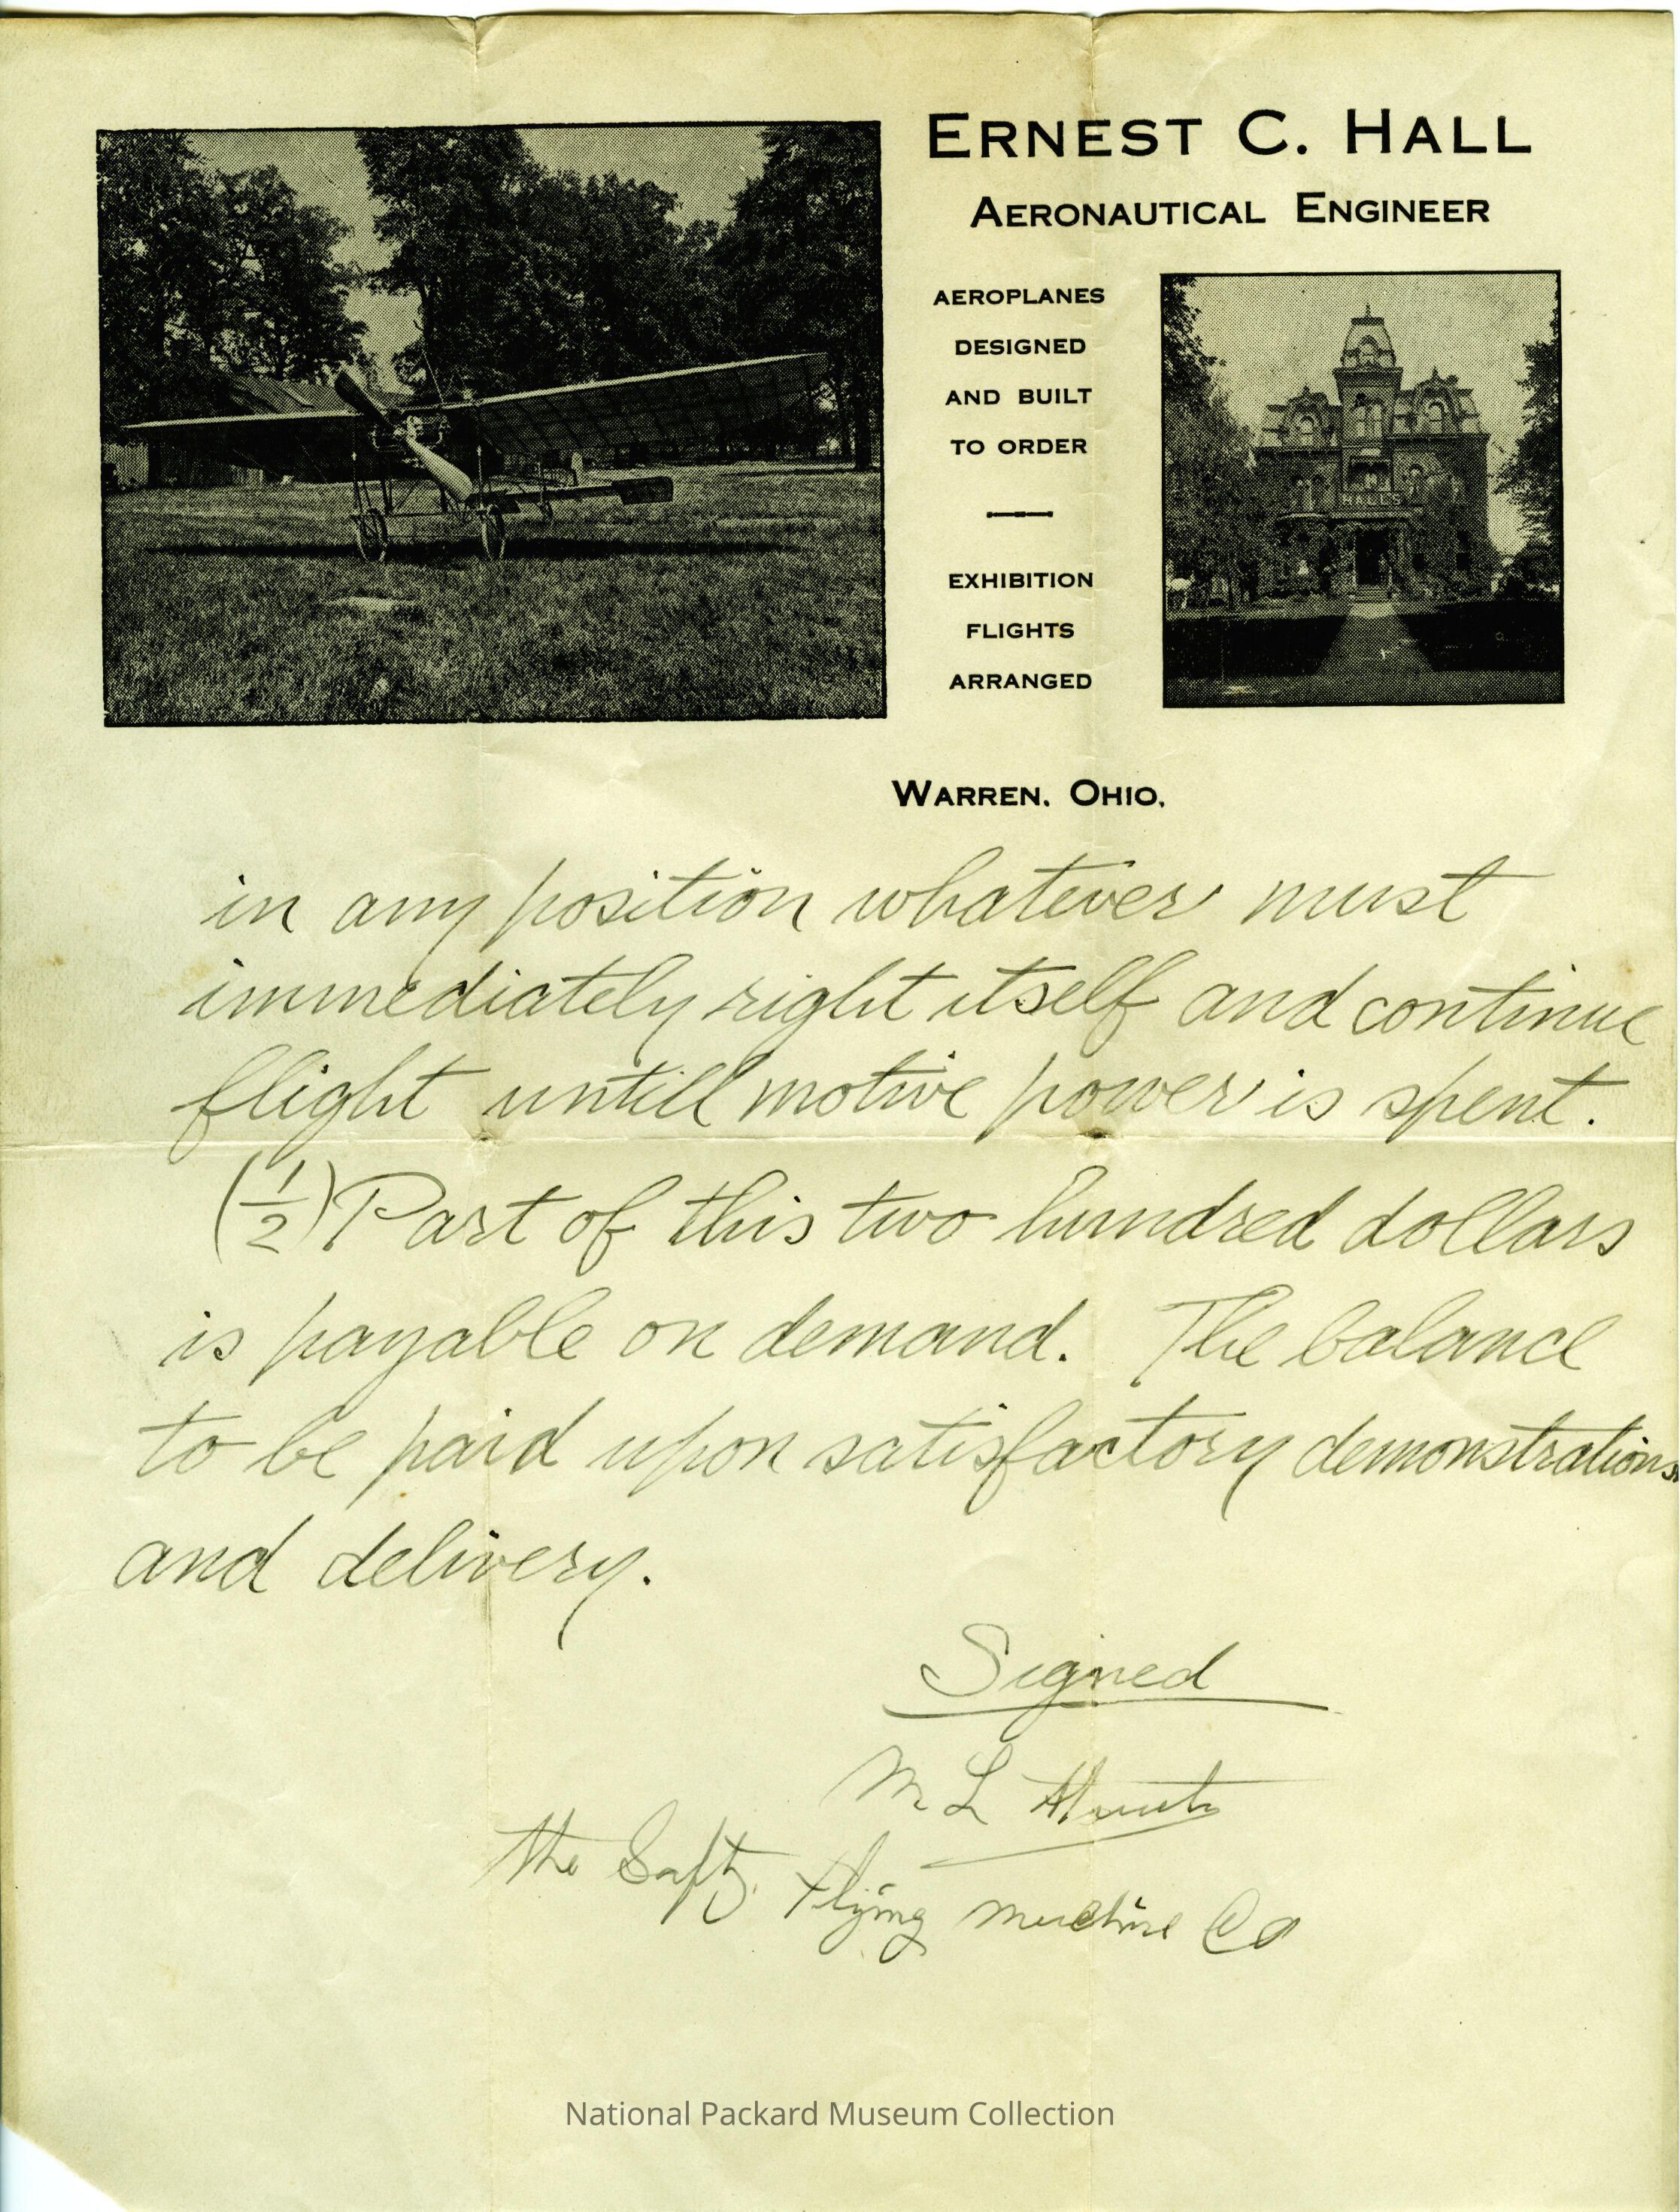 ERNEST C. HALL
AERONAUTICAL ENGINEER
AEROPLANES
DESIGNED
AND BUILT
TO ORDER
EXHIBITION
FLIGHTS
ARRANGED
HALL'S
WARREN, OHIO,
in any position whatever must
immediately right itself and continue
flight untill motive power is spent.
(1/2) Part of this two hundred dollars
is payable on demand. The balance
to be paid upon satisfactory demonstrations
and delivery.
Signed
M L
the Safty Flying Machine Co
National Packard Museum Collection